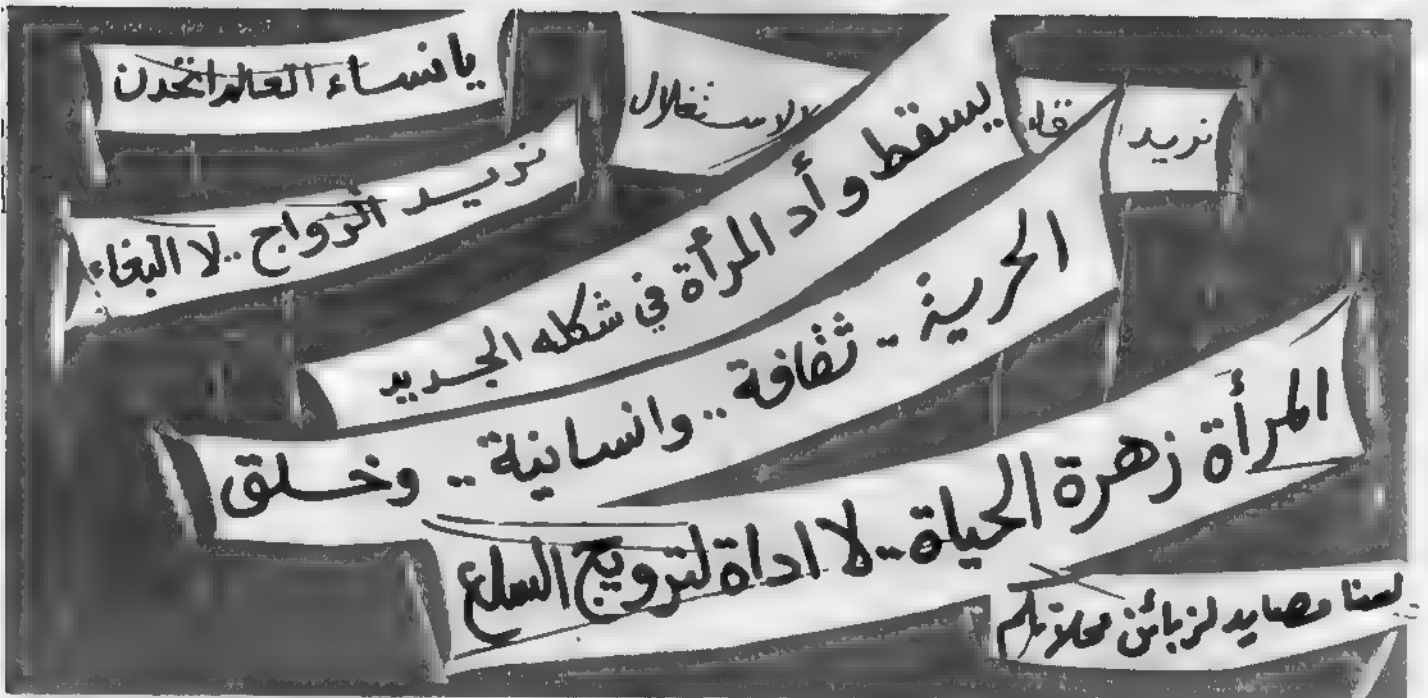 يا نساء العالم اتحدن
نريد الزواج .. لا البغاء
الاستغلال
نريد
يسقط وأد المرأة في شكله الجديد
الحرية .. ثقافة .. وانسانية .. وخلق
المرأة زهرة الحياة .. لا اداة لترويج السلع
لسنا مصايد لزبائن محلاتكم